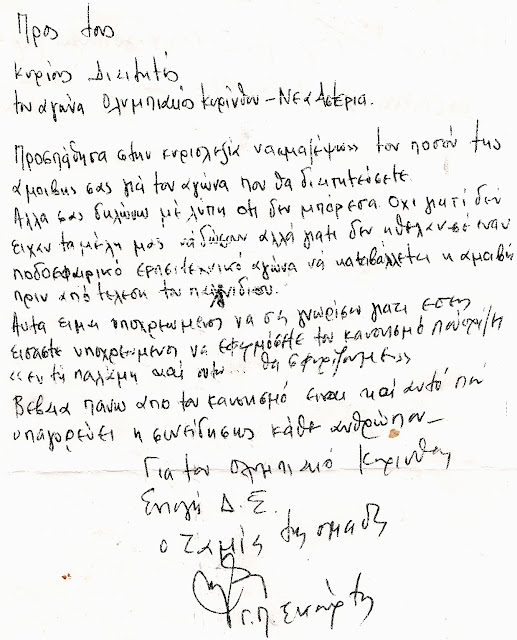 Προς τους
κυρίους Διαιτητές
του αγώνα Ολυμπιακός Κορίνθου - Νέα Αστέρια.
Προσπάθησα στην κυριολεξία να «μαζέψω» τον ποσόν της
αμοιβής σας γιά τον αγώνα που θα διαιτητεύσετε
Αλλά σας δηλώνω με λύπη ότι δεν μπόρεσα. Όχι γιατί δεν
είχαν τα μέλη μας να δώσουν αλλά γιατί δεν ήθελαν σέ έναν
ποδοσφαιρικό ερασιτεχνικό αγώνα νά καταβάλλεται η αμοιβή
πριν από τέλεση του παιχνιδιου.
Αυτα ειμαι υποχρεωμένος να σας γνωρίσω γιατι εσεις
είσαστε υποχρεωμένοι να εφαρμόσετε τον κανονισμό
«εν τη παλάμη και ούτω... θα σφυρίζουμε»
Βέβαια πάνω από τον κανονισμό είναι και αυτό πού
υπαγορεύει η συνείδησης κάθε ανθρώπου -
Για τον Ολυμπιακό Κορίνθου
Εντολή Δ.Σ.
ο Ταμίας της ομαδας